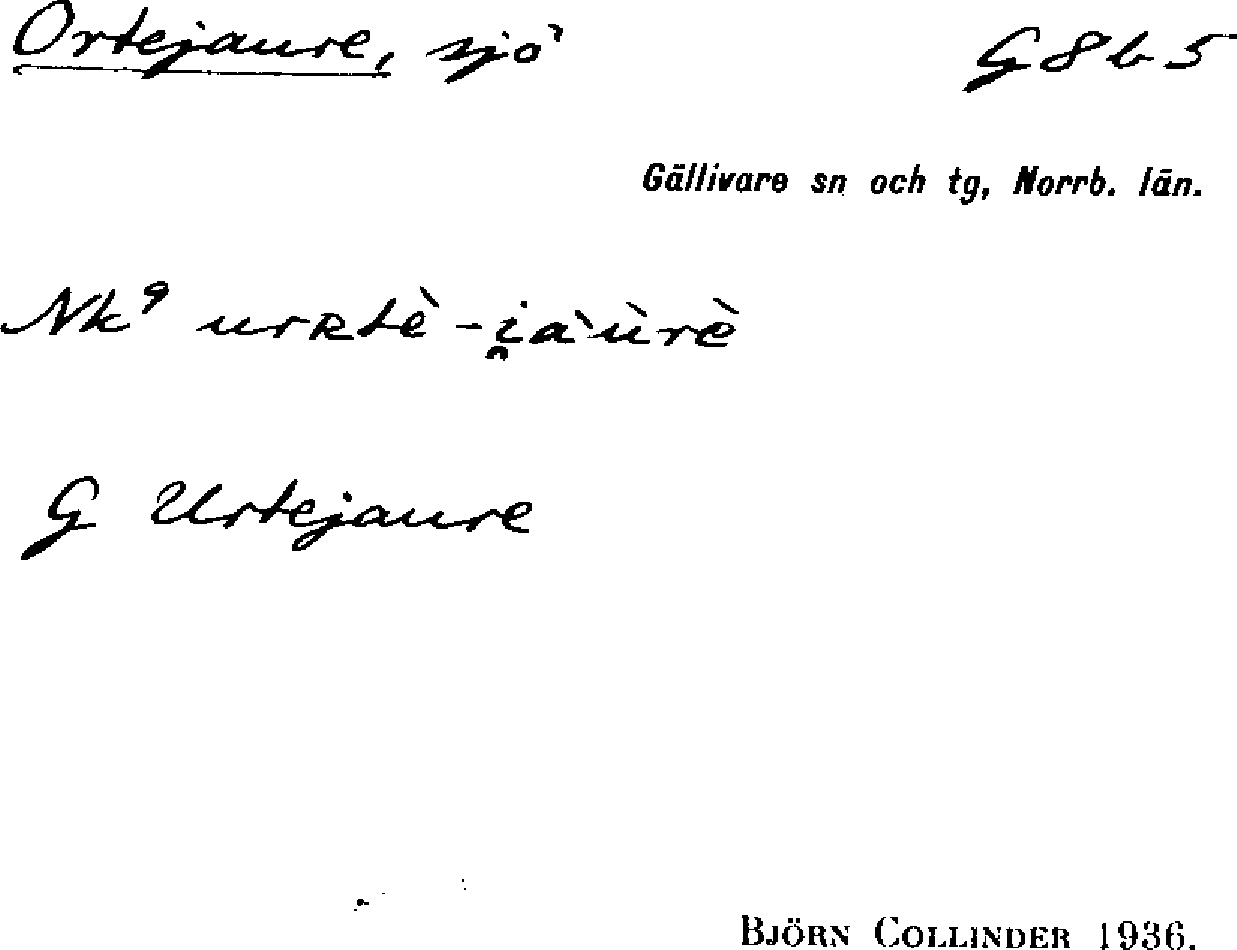 Ortejaure, sjö G8b5
Gällivare sn och tg, Norrb. län.
Nk⁹ urʀtè-i̯àùrè
G Urtejaure
BJÖRN COLLINDER 1936.